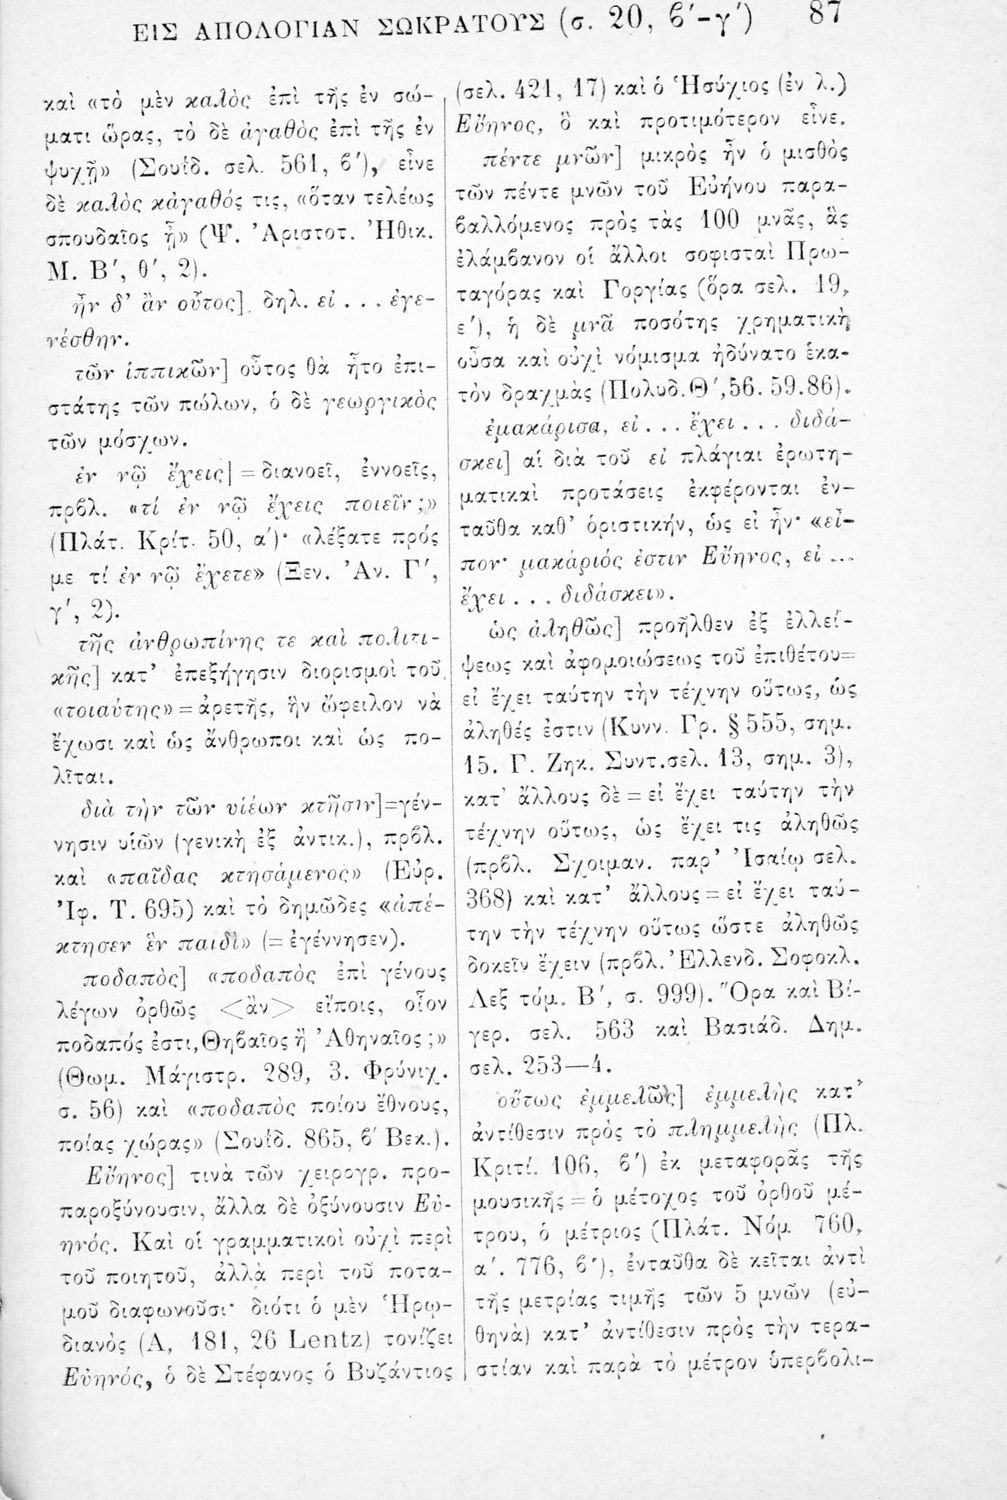 ΕΙΣ ΑΠΟΛΟΓΙΑΝ ΣΩΚΡΑΤΟΥΣ (σ. 20, ϐ′-γ′) 87
καὶ «τὸ μὲν καλὸς ἐπὶ τῆς ἐν σώ-
ματι ὥρας, τὸ δὲ ἀγαθὸς ἐπὶ τῆς ἐν
ψυχῇ» (Σουΐδ. σελ. 561, ϐ′), εἶνε
δὲ καλὸς κἀγαθός τις, «ὅταν τελέως
σπουδαῖος ᾖ» (Ψ. Ἀριστοτ. Ἠθικ.
Μ. Β′, θ′, 2).
ἦν δ' ἂν οὗτος]. δηλ. εἰ . . . ἐγε-
νέσθην.
τῶν ἱππικῶν] οὗτος θὰ ἦτο ἐπι-
στάτης τῶν πώλων, ὁ δὲ γεωργικὸς
τῶν μόσχων.
ἐν νῷ ἔχεις] = διανοεῖ, ἐννοεῖς,
πρϐλ. «τί ἐν νῷ ἔχεις ποιεῖν;»
(Πλάτ. Κρίτ. 50, α′)· «λέξατε πρός
με τί ἐν νῷ ἔχετε» (Ξεν. Ἀν. Γ′,
γ′, 2).
τῆς ἀνθρωπίνης τε καὶ πολιτι-
κῆς] κατ' ἐπεξήγησιν διορισμοὶ τοῦ
«τοιαύτης» = ἀρετῆς, ἣν ὤφειλον νὰ
ἔχωσι καὶ ὡς ἄνθρωποι καὶ ὡς πο-
λῖται.
διὰ τὴν τῶν υἱέων κτῆσιν]=γέν-
νησιν υἱῶν (γενικὴ ἐξ ἀντικ.), πρϐλ.
καὶ «παῖδας κτησάμενος» (Εὐρ.
Ἰφ. Τ. 695) καὶ τὸ δημῶδες «ἀπέ-
κτησεν ἓν παιδὶ» (= ἐγέννησεν).
ποδαπὸς] «ποδαπὸς ἐπὶ γένους
λέγων ὀρθῶς <ἂν> εἴποις, οἷον
ποδαπός ἐστι, Θηϐαῖος ἢ Ἀθηναῖος ;»
(Θωμ. Μάγιστρ. 289, 3. Φρύνιχ.
σ. 56) καὶ «ποδαπὸς ποίου ἔθνους,
ποίας χώρας» (Σουΐδ. 865, ϐ′ Βεκ.).
Εὔηνος] τινὰ τῶν χειρογρ. προ-
παροξύνουσιν, ἄλλα δὲ ὀξύνουσιν Εὐ-
ηνός. Καὶ οἱ γραμματικοὶ οὐχὶ περὶ
τοῦ ποιητοῦ, ἀλλὰ περὶ τοῦ ποτα-
μοῦ διαφωνοῦσι· διότι ὁ μὲν Ἡρῳ-
διανὸς (Α, 181, 26 Lentz) τονίζει
Εὐηνός, ὁ δὲ Στέφανος ὁ Βυζάντιος
(σελ. 421, 17) καὶ ὁ Ἡσύχιος (ἐν λ.)
Εὔηνος, ὃ καὶ προτιμότερον εἶνε.
πέντε μνῶν] μικρὸς ἦν ὁ μισθὸς
τῶν πέντε μνῶν τοῦ Εὐήνου παρα-
ϐαλλόμενος πρὸς τὰς 100 μνᾶς, ἃς
ἐλάμϐανον οἱ ἄλλοι σοφισταὶ Πρω-
ταγόρας καὶ Γοργίας (ὅρα σελ. 19,
ε′), ἡ δὲ μνᾶ ποσότης χρηματικὴ
οὖσα καὶ οὐχὶ νόμισμα ἠδύνατο ἑκα-
τὸν δραχμὰς (Πολυδ. Θ′, 56. 59.86).
ἐμακάρισα, εἰ . . . ἔχει . . . διδά-
σκει] αἱ διὰ τοῦ εἰ πλάγιαι ἐρωτη-
ματικαὶ προτάσεις ἐκφέρονται ἐν-
ταῦθα καθ' ὁριστικήν, ὡς εἰ ἦν· «εἶ-
πον· μακάριός ἐστιν Εὔηνος, εἰ ...
ἔχει . . . διδάσκει».
ὡς ἀληθῶς] προῆλθεν ἐξ ἐλλεί-
ψεως καὶ ἀφομοιώσεως τοῦ ἐπιθέτου=
εἰ ἔχει ταύτην τὴν τέχνην οὕτως, ὡς
ἀληθές ἐστιν (Κυνν. Γρ. § 555, σημ.
15. Γ. Ζηκ. Συντ. σελ. 13, σημ. 3),
κατ' ἄλλους δὲ = εἰ ἔχει ταύτην τὴν
τέχνην οὕτως, ὡς ἔχει τις ἀληθῶς
(πρϐλ. Σχοιμαν. παρ' Ἰσαίῳ σελ.
368) καὶ κατ' ἄλλους = εἰ ἔχει ταύ-
την τὴν τέχνην οὕτως ὥστε ἀληθῶς
δοκεῖν ἔχειν (πρϐλ. Ἐλλενδ. Σοφοκλ.
Λεξ τόμ. Β′, σ. 999). Ὅρα καὶ Βί-
γερ. σελ. 563 καὶ Βασιάδ. Δημ.
σελ. 253—4.
οὕτως ἐμμελῶς] ἐμμελὴς κατ'
ἀντίθεσιν πρὸς τὸ πλημμελὴς (Πλ.
Κριτί. 106, ϐ′) ἐκ μεταφορᾶς τῆς
μουσικῆς = ὁ μέτοχος τοῦ ὀρθοῦ μέ-
τρου, ὁ μέτριος (Πλάτ. Νόμ 760,
α′. 776, ϐ′), ἐνταῦθα δὲ κεῖται ἀντὶ
τῆς μετρίας τιμῆς τῶν 5 μνῶν (εὐ-
θηνὰ) κατ' ἀντίθεσιν πρὸς τὴν τερα-
στίαν καὶ παρὰ τὸ μέτρον ὑπερϐολι-